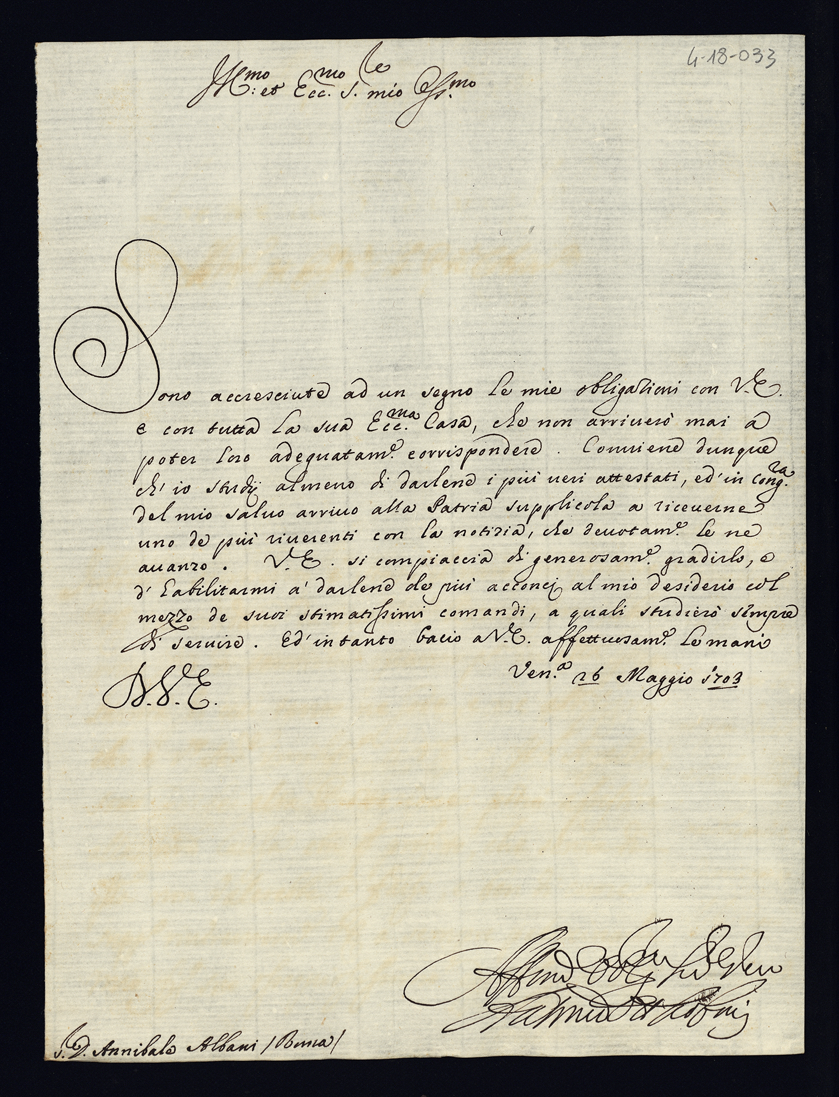 4-18-033
Ill.mo et Ecc.mo S.re mio Oss.mo
Sono accresciute ad un segno le mie obligationi con V.E.
e con tutta la sua Ecc.ma Casa, che non arriverò mai a
poter loro adeguatam.e corrispondere. Conviene dunque
ch'io studij almeno di darlene i più veri attestati, ed'in cong.ra
del mio salvo arrivo alla Patria supplicola a riceverne
uno de più riverenti con la notitia, che devotam.e le ne
avanzo. V.E. si compiaccia di generosam.e gradirlo, e
d'habilitarmi a' darlene de più acconcj al mio desiderio col
mezzo de suoi stimatissimi comandi, a quali studierò sempre
di servire. Ed'intanto bacio a V.E. affettuosam.e le mani
Ven.a 26 Maggio 1703
D.V.E.
S. D. Annibale Albani /Roma/